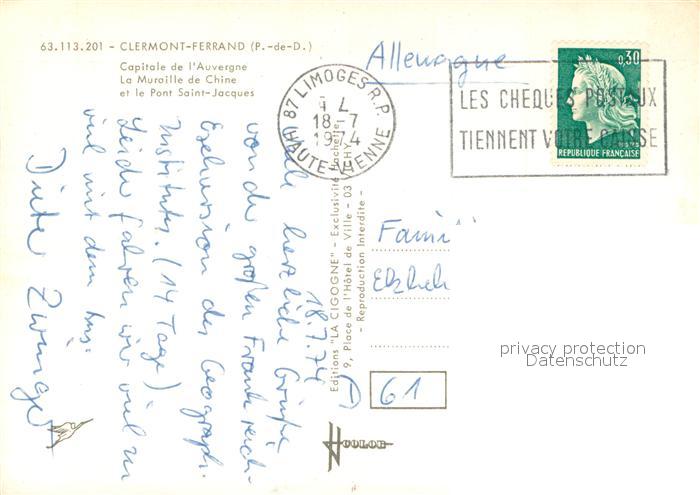 63.113.201 - CLERMONT-FERRAND (P.-de-D.)
Capitale de l'Auvergne
La Muraille de Chine
et le Pont Saint-Jacques
Allemagne
87 LIMOGES R.P.
18-7
1974
HAUTE-VIENNE
LES CHEQUES POSTAUX
TIENNENT VOTRE CAISSE
0,30
REPUBLIQUE FRANÇAISE
18.7.74
viele herzliche Grüße
von der großen Frankreich-
Exkursion des Geograph.
Instituts. (14 Tage)
Leider fahren wir viel zu
viel mit dem Bus.
Dieter Zwinger
Editions "LA CIGOGNE" - Exclusivité Hachette
9, Place de l'Hôtel de Ville - 03 VICHY
- Reproduction Interdite -
61
COLOR
privacy protection
Datenschutz